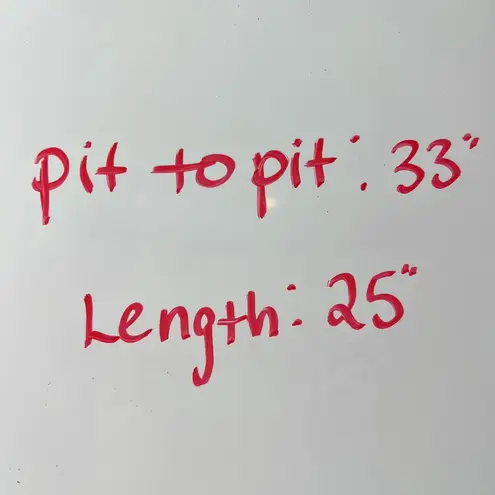 pit to pit: 33"
Length: 25"